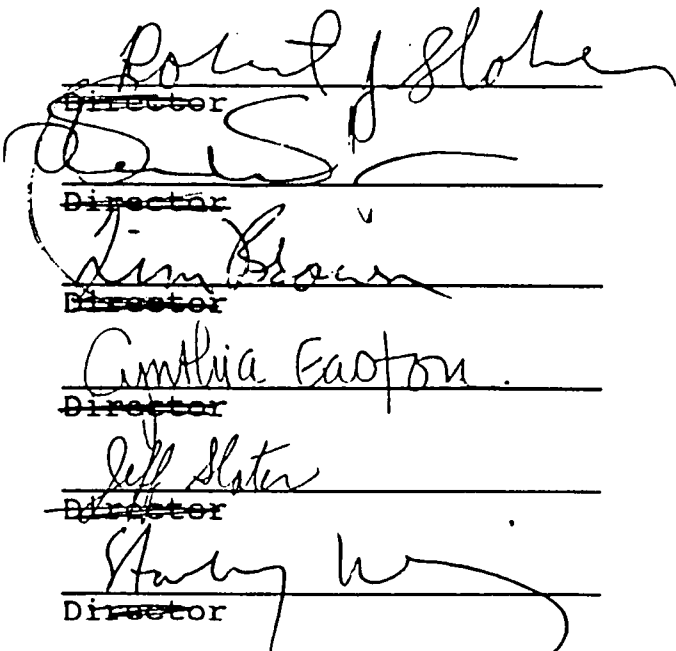 Robert J Slo
Director
Director
Jim Brown
Director
Cynthia Easton.
Director
Jeff Slater
Director
Stanley
Director